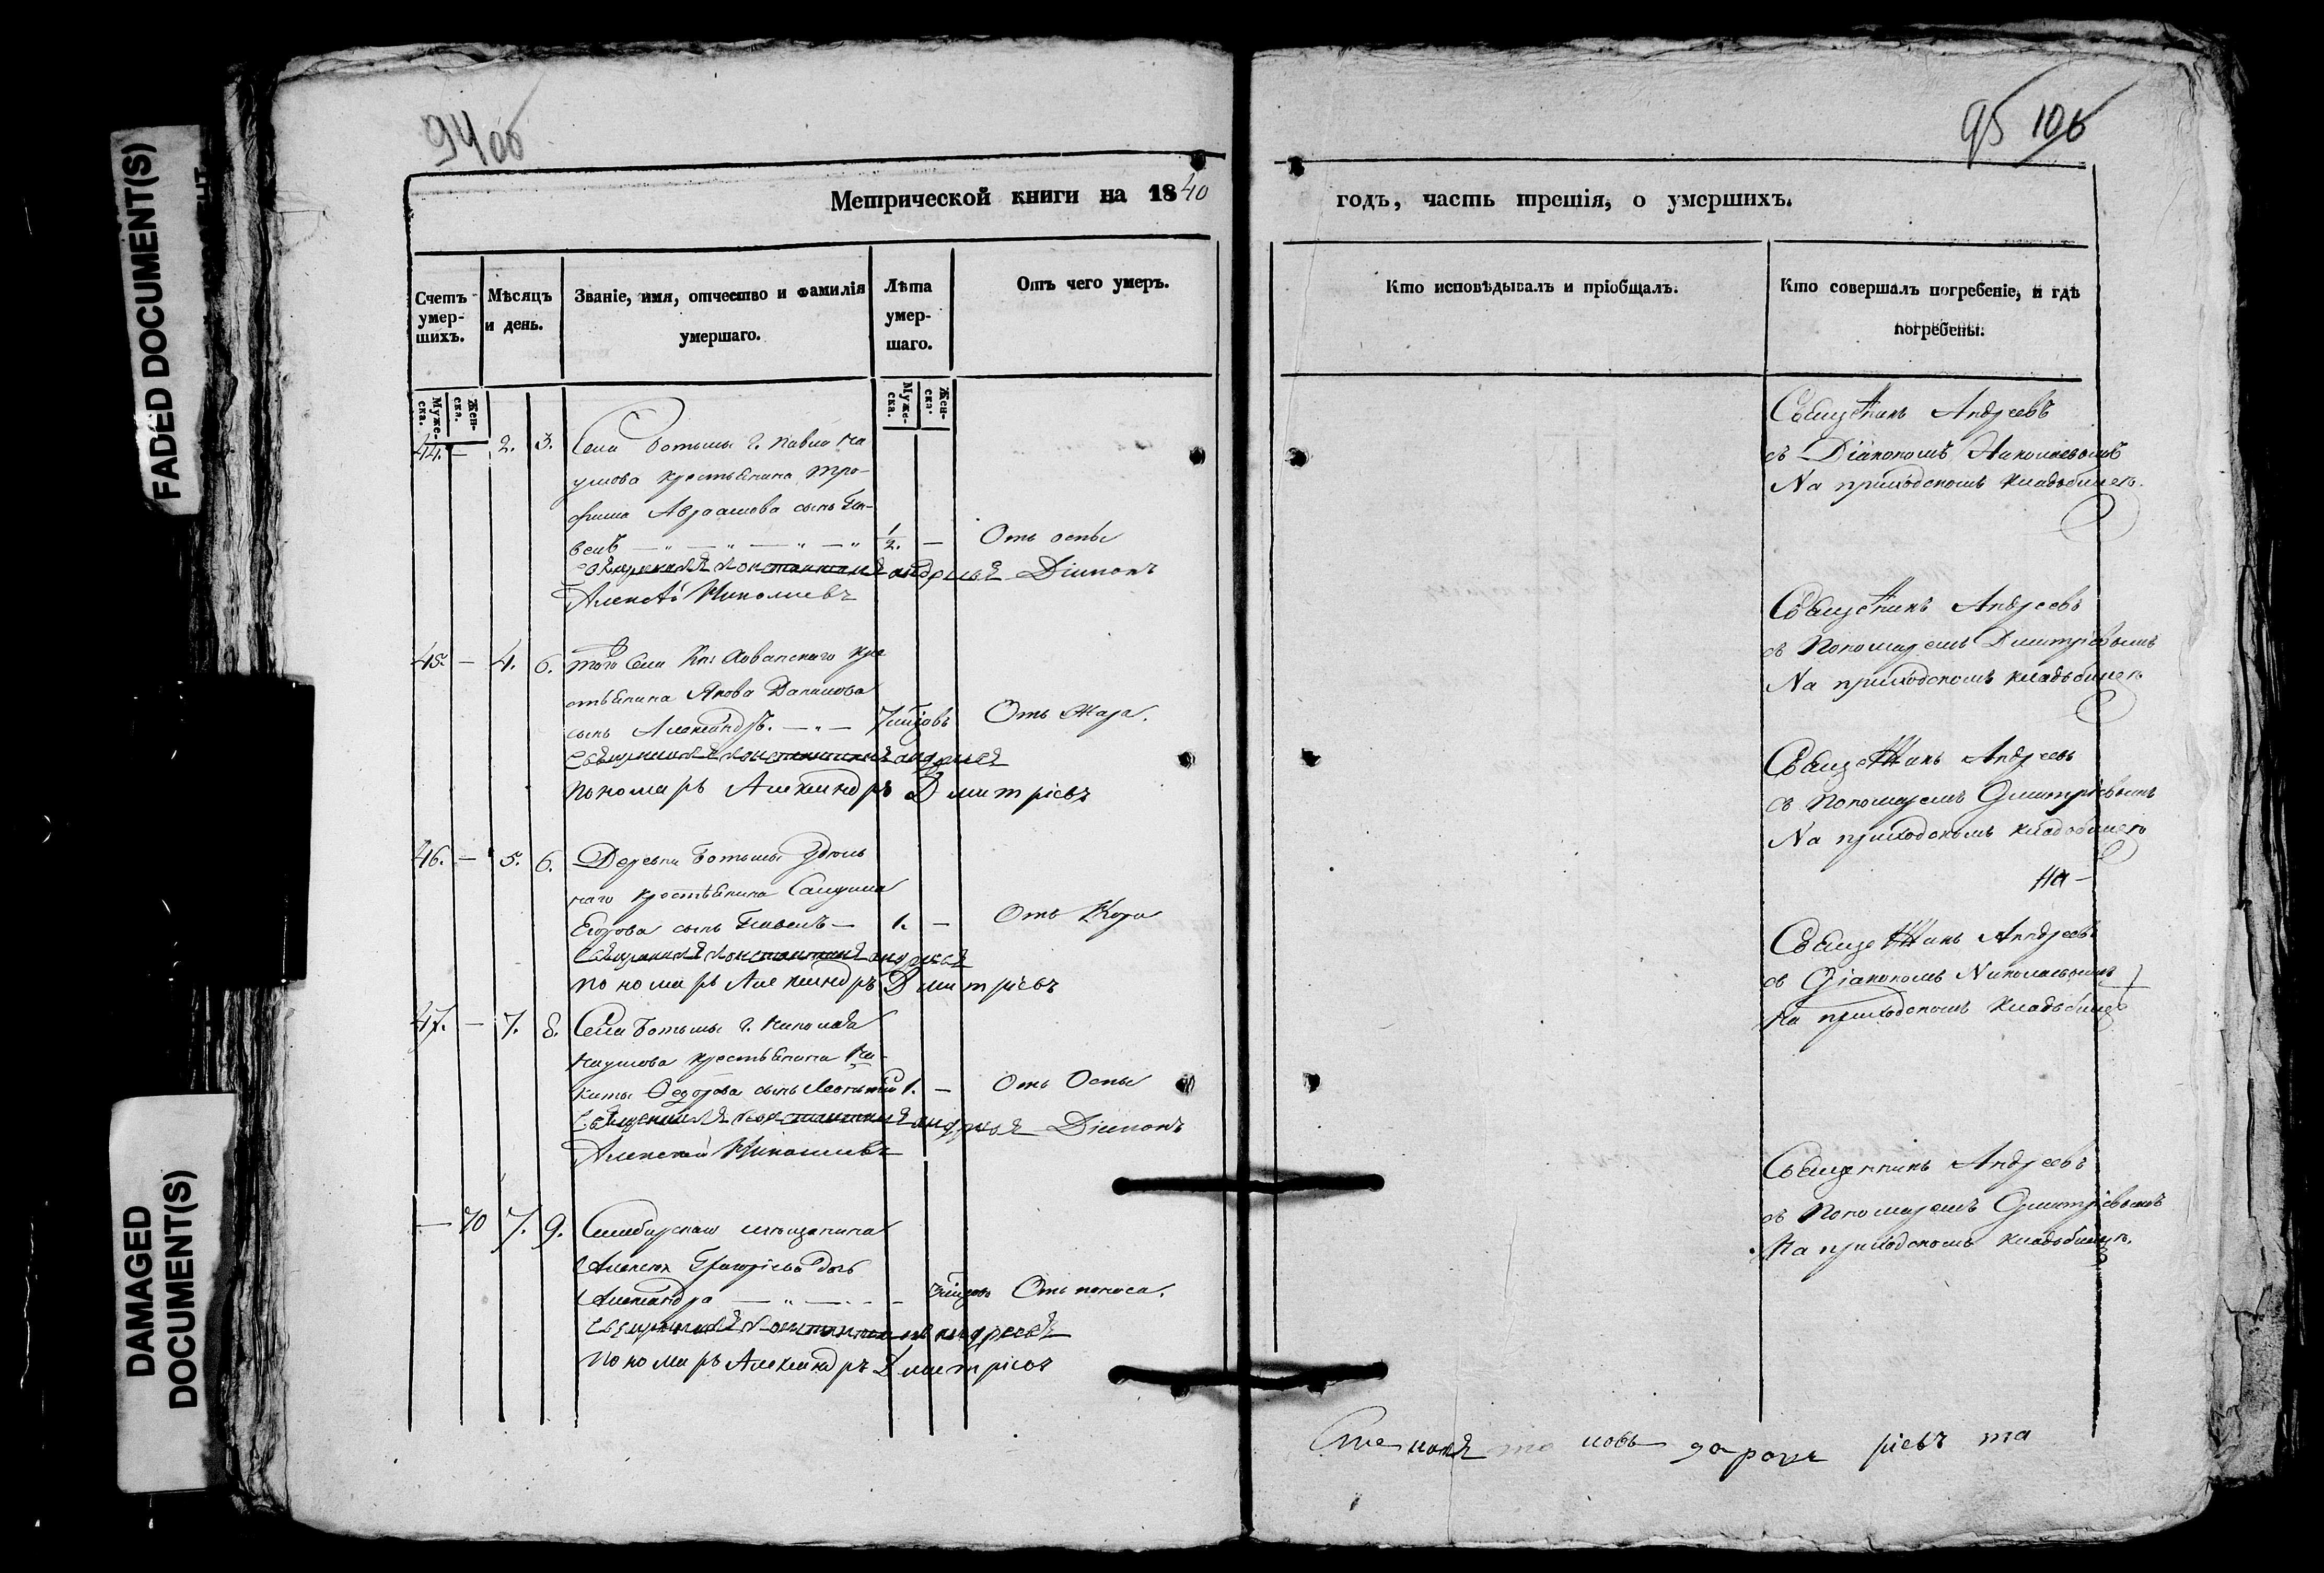 FADED DOCUMENT(S)
DAMAGED
DOCUMENT(S)
94
95 106
Метрической книги на 1840
годъ, часть третія, о умершихъ.
Счетъ умер-шихъ.
Мѣсяцъ и день.
Званіе, имя, отчество и фамилія умершаго.
Лѣта умер-шаго.
Отъ чего умеръ.
Кто исповѣдывалъ и пріобщалъ.
Кто совершалъ погребеніе, и гдѣ погребены.
Муже-ска.
Жен-ска.
Муже-ска.
Жен-ска.
44. — 2. 3. Села Ботьмы Г. Павла На
умова крестьянина Тро-
фима Авраамова сынъ Па-
велъ 1/2. — Отъ оспы
Священникъ Константинъ Андреевъ Діаконъ
Алексѣй Николаевъ
Священникъ Андреевъ
съ Діакономъ Николаевымъ
На приходскомъ кладбищѣ.
45. — 4. 6. Того Села Кн: Хованскаго кре
стьянина Якова Данилова
сынъ Александръ. 7 Отъ жара.
Священникъ Константинъ Андреевъ
Пономарь Александръ Дмитріевъ
Священникъ Андреевъ
съ Пономаремъ Дмитріевымъ
На приходскомъ кладбищѣ
46. — 5. 6. Деревни Ботьмы Удѣль
наго крестьянина Самуила
Егорова сынъ Павелъ — 1. — Отъ Кори
Священникъ Константинъ Андреевъ
Пономарь Александръ Дмитріевъ
Священникъ Андреевъ
съ Пономаремъ Дмитріевымъ
На приходскомъ кладбищѣ
47. — 7. 8. Села Ботьмы Г. Николая
Наумова крестьянина Ни-
киты Ѳедорова сынъ Леонтій 1. — Отъ Оспы
Священникъ Константинъ Андреевъ Діаконъ
Алексѣй Николаевъ
Священникъ Андреевъ
съ Діакономъ Николаевымъ
На приходскомъ кладбищѣ
— 70 7. 9. Симбирскаго мѣщанина
Алексѣя Григорьева дочь
Александра Отъ поноса.
Священникъ Константинъ Андреевъ
Пономарь Александръ Дмитріевъ
Священникъ Андреевъ
съ Пономаремъ Дмитріевымъ
На приходскомъ кладбищѣ.